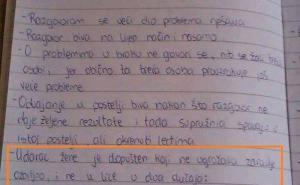 - Razgovorom se veći dio problema rješava
- Razgovor biva na lijep način i nasamo
- O problemima u braku ne govori se, niti se žali trećoj
osobi, jer obično ta treća osoba prouzrokuje još
veće probleme
- Odvajanje u postelji biva nakon što razgovor ne
da željene rezultate i tada supružnici spavaju u
istoj postelji, ali okrenuti leđima
- Udarac žene je dopušten koji ne ugrožava zdravlje
ozbiljno, i ne u lice u dva slučaja: